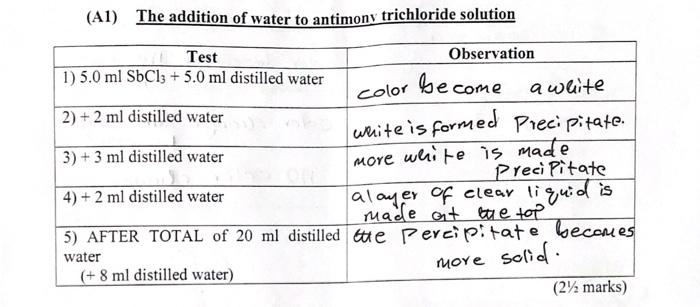 (A1) The addition of water to antimony trichloride solution
Test
Observation
1) 5.0 ml SbCl₃ + 5.0 ml distilled water
color become a white
2) + 2 ml distilled water
white is formed Precipitate.
3) + 3 ml distilled water
more white is made
Precipitate
4) + 2 ml distilled water
a layer of clear liquid is
made at the top
5) AFTER TOTAL of 20 ml distilled
water
(+ 8 ml distilled water)
the Percipitate becomes
more solid.
(2½ marks)